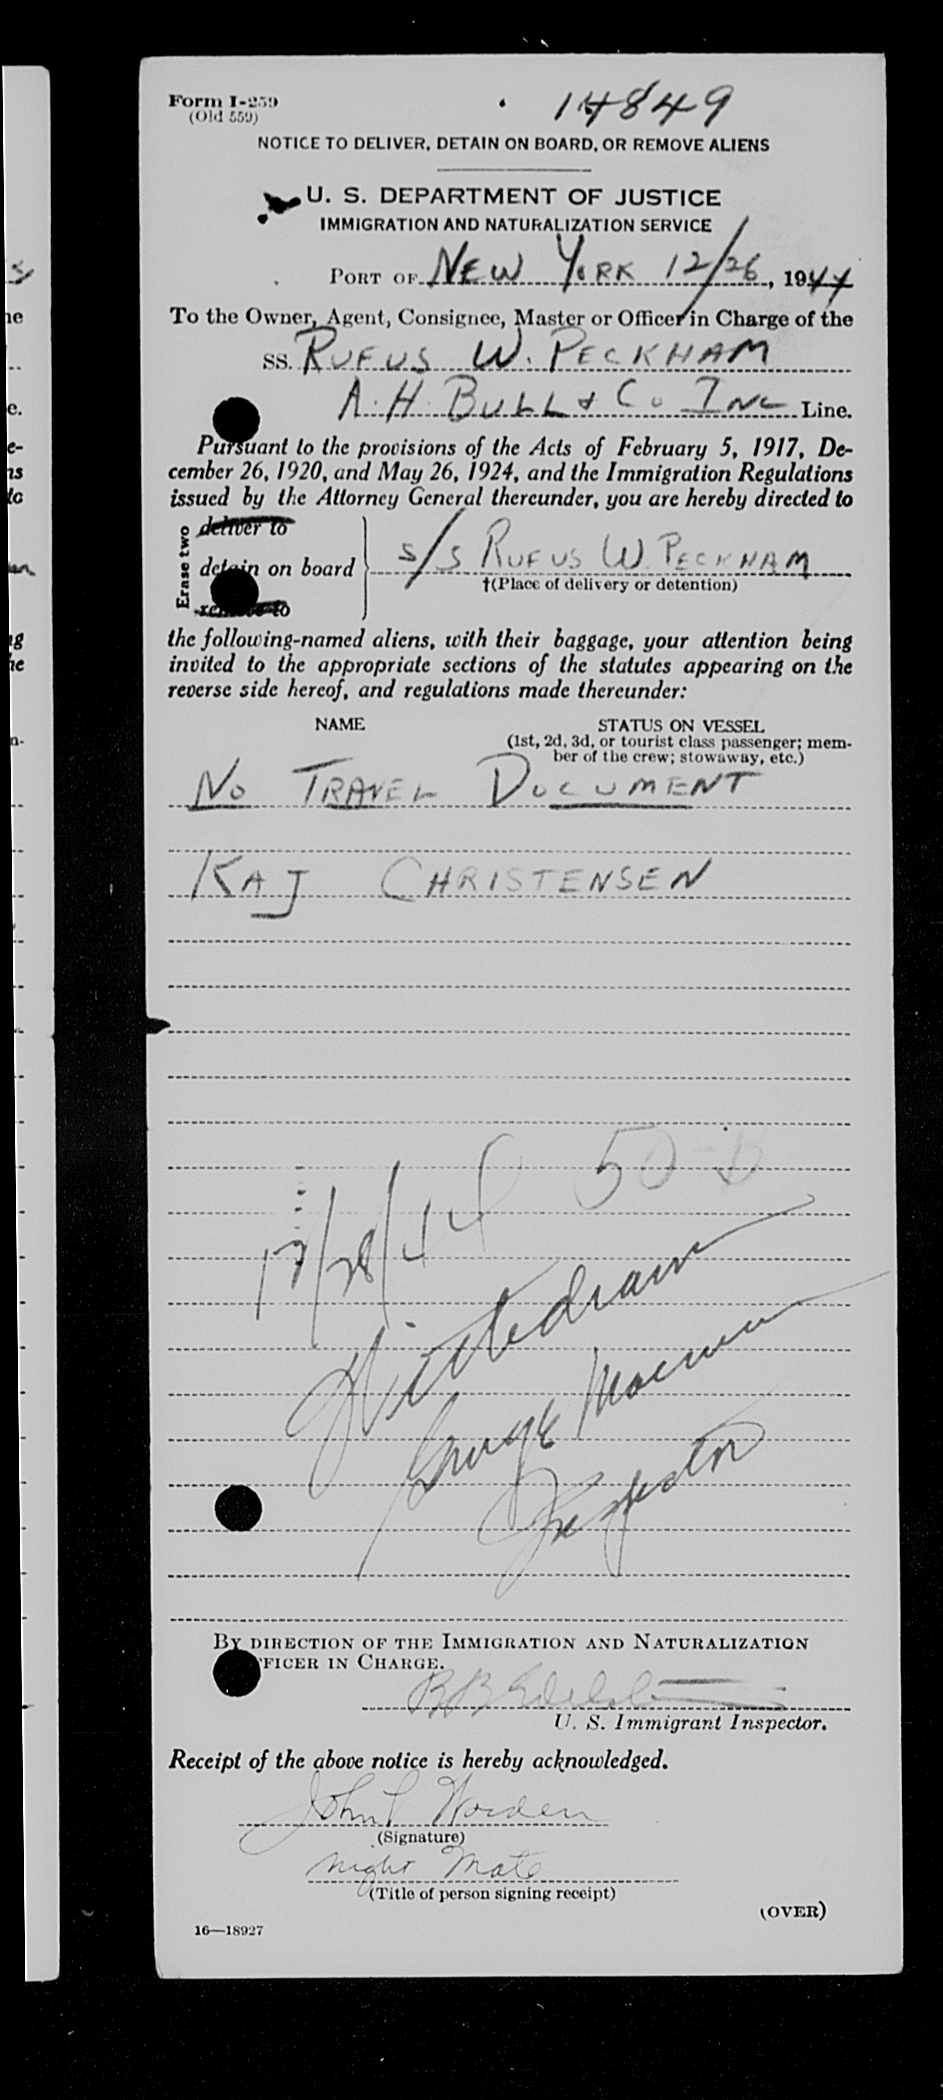 Form I-259
(Old 559)
14849
NOTICE TO DELIVER, DETAIN ON BOARD, OR REMOVE ALIENS
U. S. DEPARTMENT OF JUSTICE
IMMIGRATION AND NATURALIZATION SERVICE
PORT OF NEW YORK 12/26, 1944
To the Owner, Agent, Consignee, Master or Officer in Charge of the
SS. RUFUS W. PECKHAM
A. H. BULL & Co INC Line.
Pursuant to the provisions of the Acts of February 5, 1917, De-
cember 26, 1920, and May 26, 1924, and the Immigration Regulations
issued by the Attorney General thereunder, you are hereby directed to
Erase two
deliver to
detain on board
remove to
S/S RUFUS W. PECKHAM
†(Place of delivery or detention)
the following-named aliens, with their baggage, your attention being
invited to the appropriate sections of the statutes appearing on the
reverse side hereof, and regulations made thereunder:
NAME
STATUS ON VESSEL
(1st, 2d, 3d, or tourist class passenger; mem-
ber of the crew; stowaway, etc.)
NO TRAVEL DOCUMENT
KAJ CHRISTENSEN
12/28/44
Withdrawn
George
Inspector
BY DIRECTION OF THE IMMIGRATION AND NATURALIZATION
FFICER IN CHARGE.
U. S. Immigrant Inspector.
Receipt of the above notice is hereby acknowledged.
John L Worden
(Signature)
Night Mate
(Title of person signing receipt)
(OVER)
16—18927